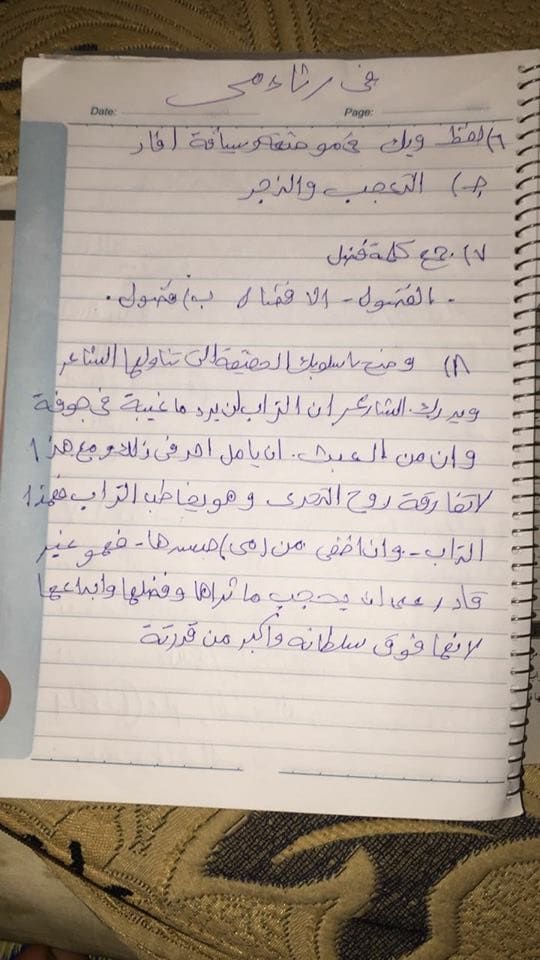 في رثاء مي
Date:
Page:
٦) لفظ ويك في موضعه وسياقة افاد
جـ) التعجب والزجر
٧) جمع كلمة فضل
- الفضول - الافضال ب) فضول.
٨) وضح باسلوبك الحقيقة التى تناولها الشاعر
ويدرك الشاعر ان التراب لن يرد ما غيبة في جوفة
وان من العبث. ان يامل احد في ذلك ومع هذا
لاتفارقة روح التحدى وهو يخاطب التراب فهذا
التراب - وان اخفى من (مى) جسدها - فهو غير
قادر على ان يحجب ماثراها وفضلها وابداعها
لانها فوق سلطانه وأكبر من قدرتة